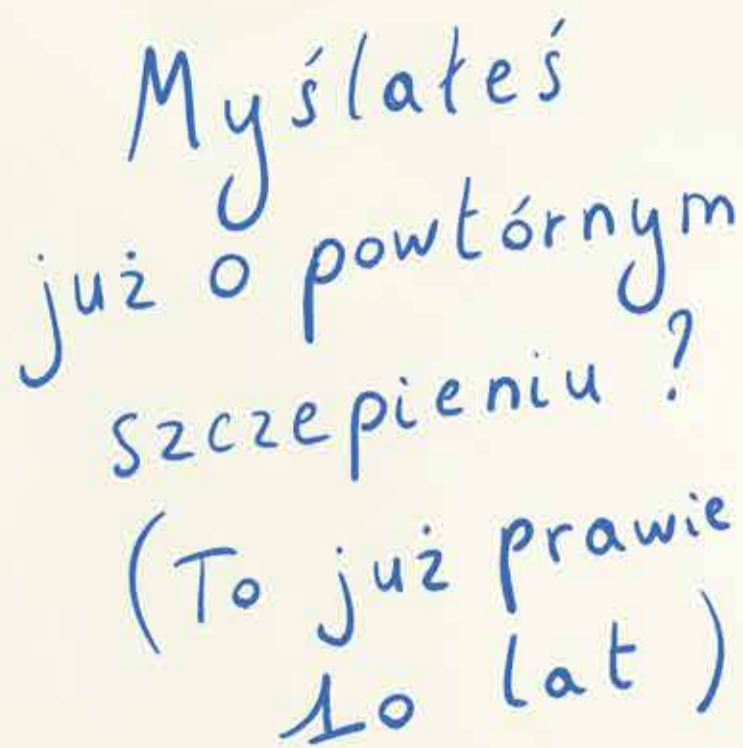 Myślałeś
już o powtórnym
szczepieniu?
(To już prawie
10 lat)